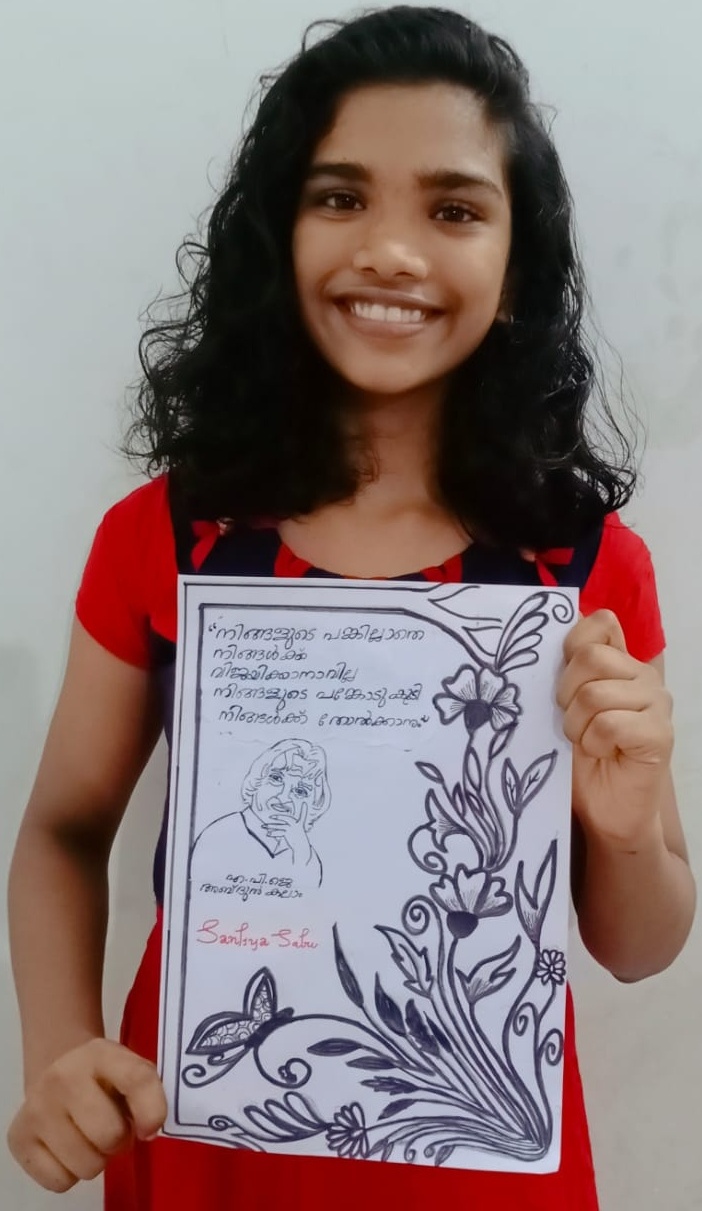 “നിങ്ങളുടെ പങ്കില്ലാതെ
നിങ്ങൾക്ക്
വിജയിക്കാനാവില്ല
നിങ്ങളുടെ പങ്കോടുകൂടി
നിങ്ങൾക്ക് തോൽക്കാനും”
എ.പി.ജെ
അബ്ദുൾ കലാം
Sabu